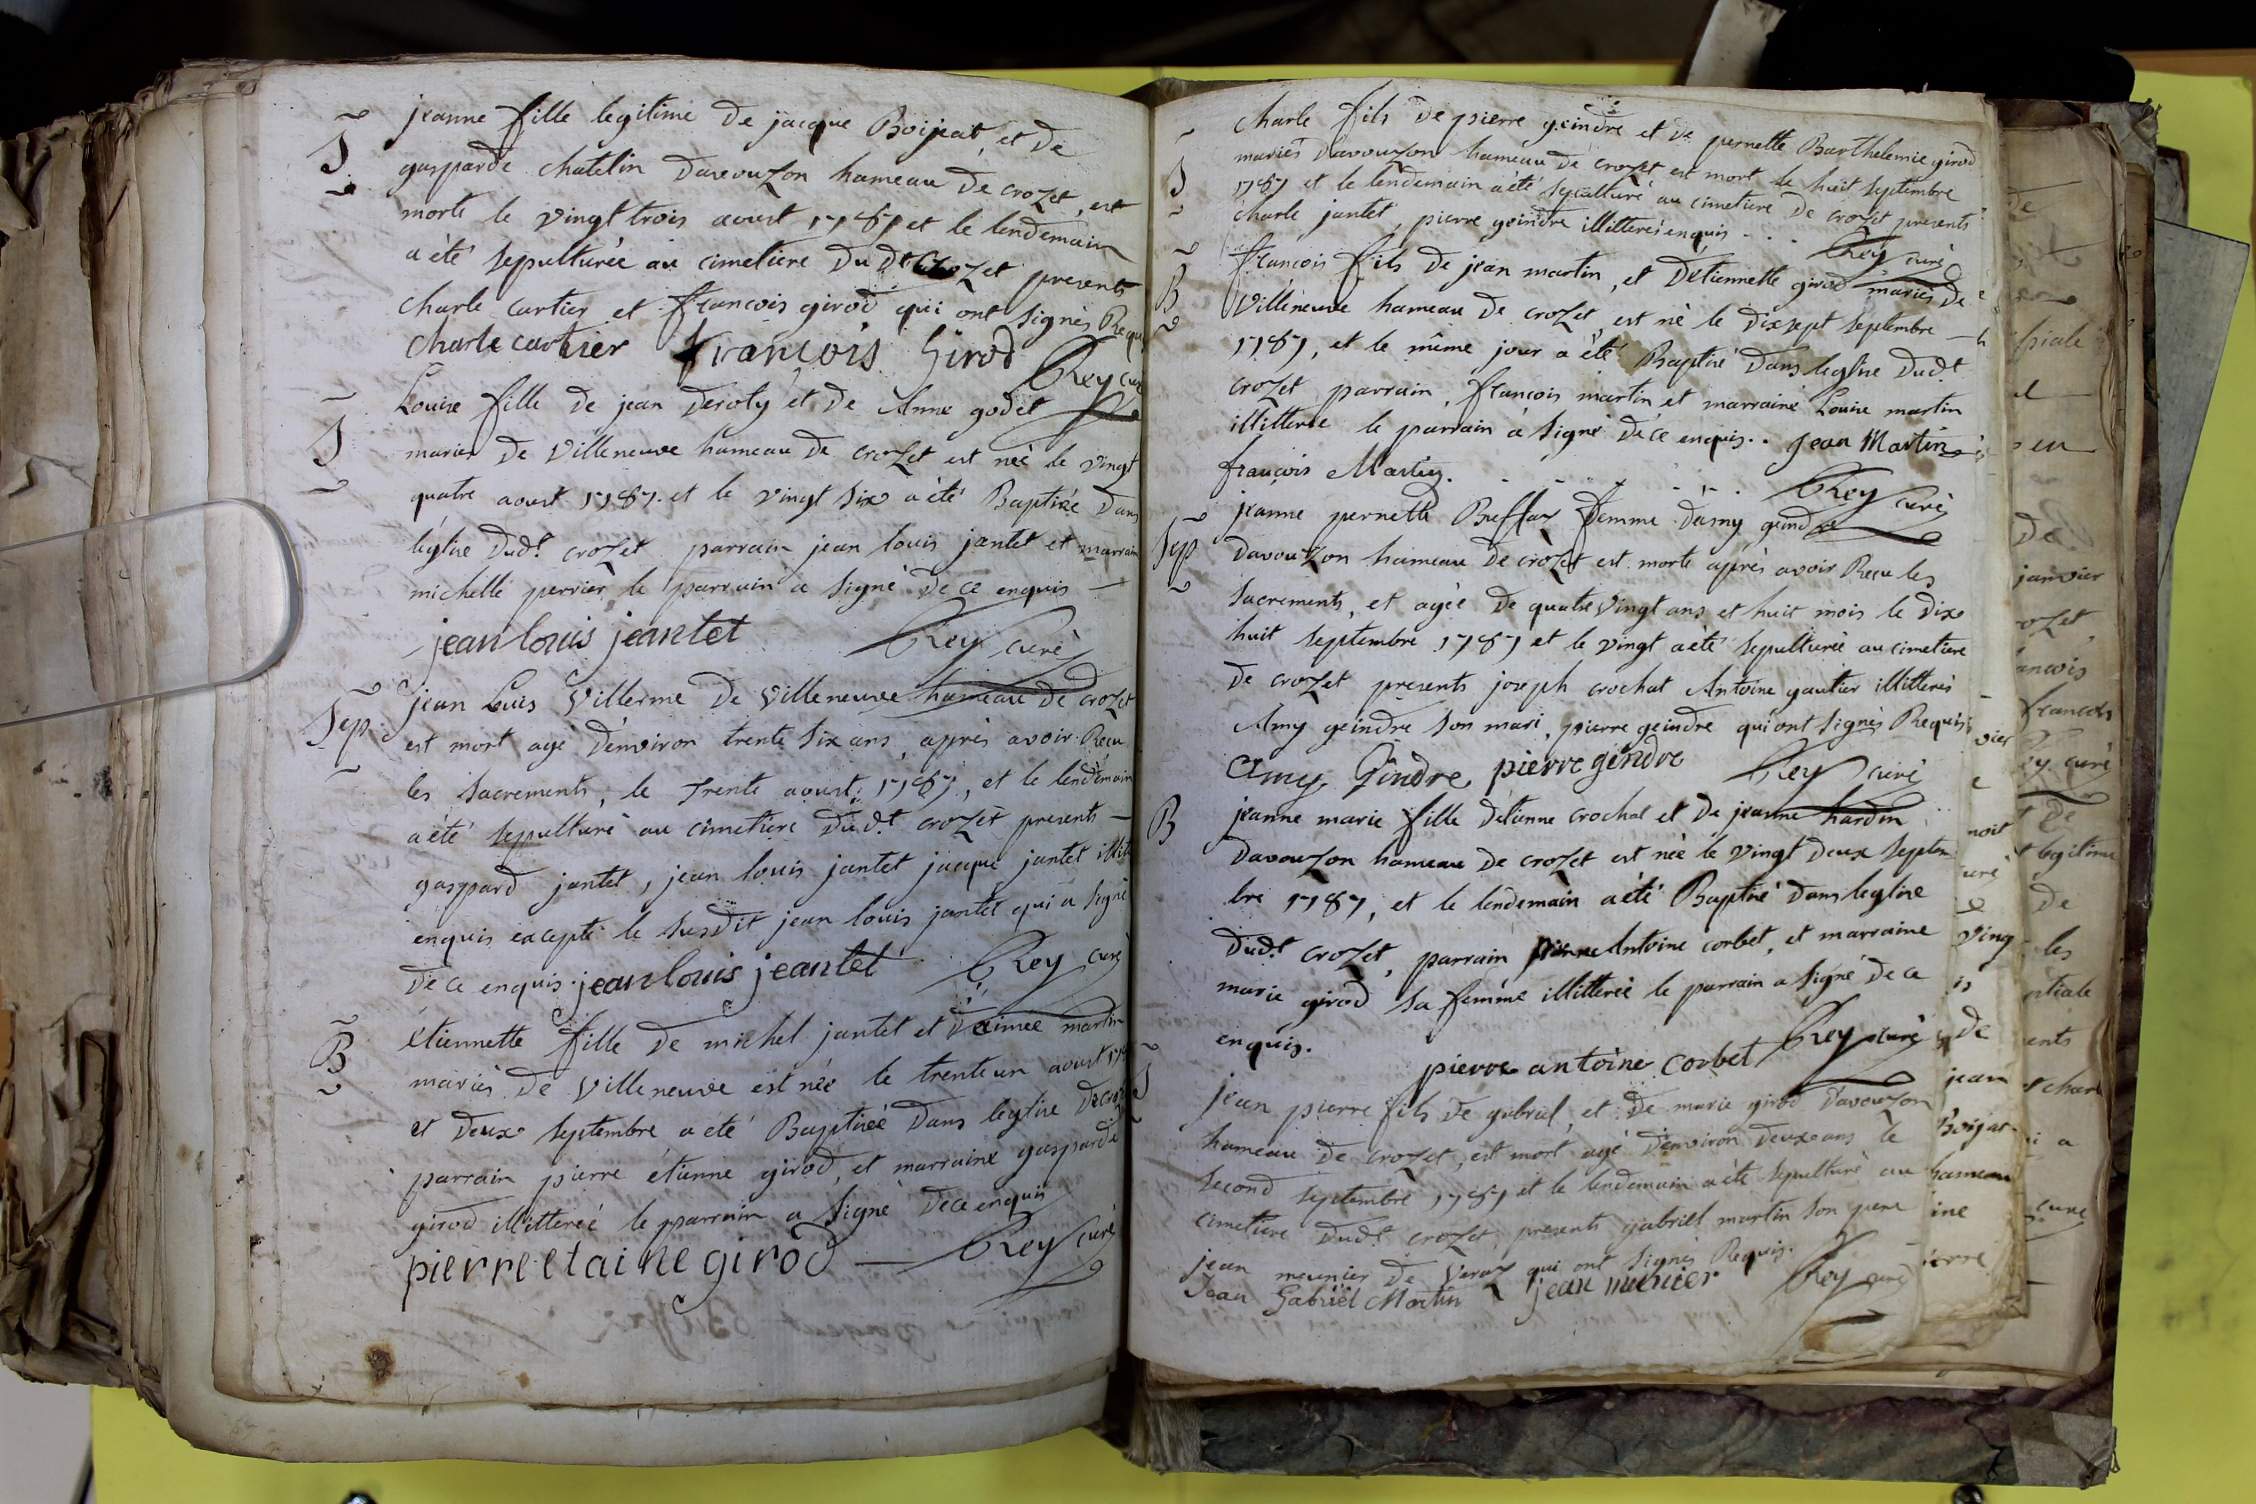 S
jeanne fille legitime De jacque Boijeat, et De
gasparde chatelin Davouzon hameau De crozet, est
morte le vingt trois aoust 1787 et le lendemain
a été sepulturée au cimetiere Du Dt Crozet presents
charle cartier et francois girod qui ont signés Requis
charle cartier francois Girod Rey curé
S
Louise fille de jean Deroty et De Anne godet
mariés De Villeneuve hameau De crozet est née le vingt
quatre aoust 1787. et le vingt six a été Baptisée Dans
léglise Dud.t crozet parrain jean louis jantet et marraine
michelle perrier le parrain a signé De ce enquis
jean louis jeantet Rey curé
Sep.
jean Luis Villerme De Villeneuve hameau De crozet
est mort agé D'environ trente six ans, après avoir Recu
les sacrements, le trente aoust 1787, et le lendemain
a été sepulturé au cimetiere Dud.t crozet presents
gaspard jantet, jean louis jantet jacque jantet illit
enquis excepté le susdit jean louis jantet qui a signé
De ce enquis jean louis jeantet Rey curé
B
etiennette fille De michel jantet et D'aimée martin
mariés De Villeneuve est née le trente un aoust
et Deux septembre a été Baptiseé Dans leglise De
parrain pierre étienne girod, et marraine gasparde
girod illitereé le parrain a signé De ce enquis
pierre etaine girod Rey curé
S
charle fils De pierre geindre et De pernette Barthelemie girod
mariés Davouzon hameau De crozet est mort le huit septembre
1787 et le lendemain a été sepulturé au cimetiere De crozet presents
charle jantet, pierre geindre illitterés enquis Rey curé
B
francois fils De jean martin, et D'etiennette girod mariés De
Villeneuve hameau De crozet, est né le Dix sept septembre
1787, et le même jour a été Baptisé Dans leglise Dud.t
crozet parrain, francois martin et marraine Louise martin
illitterée le parrain a signé De ce enquis. jean Martin
françois Martin. Rey curé
Sep
jeanne pernette Buffax femme D'amy geindre
Davouzon hameau De crozet est morte après avoir Recu les
sacrements, et agée De quatre vingt ans et huit mois le Dix
huit septembre 1787 et le vingt a été sepulturée au cimetiere
De crozet presents joseph crochat Antoine gautier illitterés
Amy geindre son mari, pierre geindre qui ont signés Requis
Amy Gindre, pierre gindre Rey curé
B
jeanne marie fille D'etienne crochat et De jeanne hardin
Davouzon hameau De crozet est née le vingt Deux Septem
bre 1787, et le lendemain a été Baptisé Dans leglise
Dud.t crozet, parrain pierre Antoine corbet, et marraine
marie girod sa femme illitterée le parrain a signé De ce
enquis.
pierre antoine corbet Rey curé
S
jean pierre fils De gabriel, et De marie girod Davouzon
hameau De crozet, est mort agé D'environ Deux ans le
second septembre 1787 et le lendemain a été sepulturé au
cimetiere Dud.t crozet, presents gabriel martin son pere
jean meunier De Veraz qui ont signés Requis.
Jean Gabriel Martin jean munier Rey curé